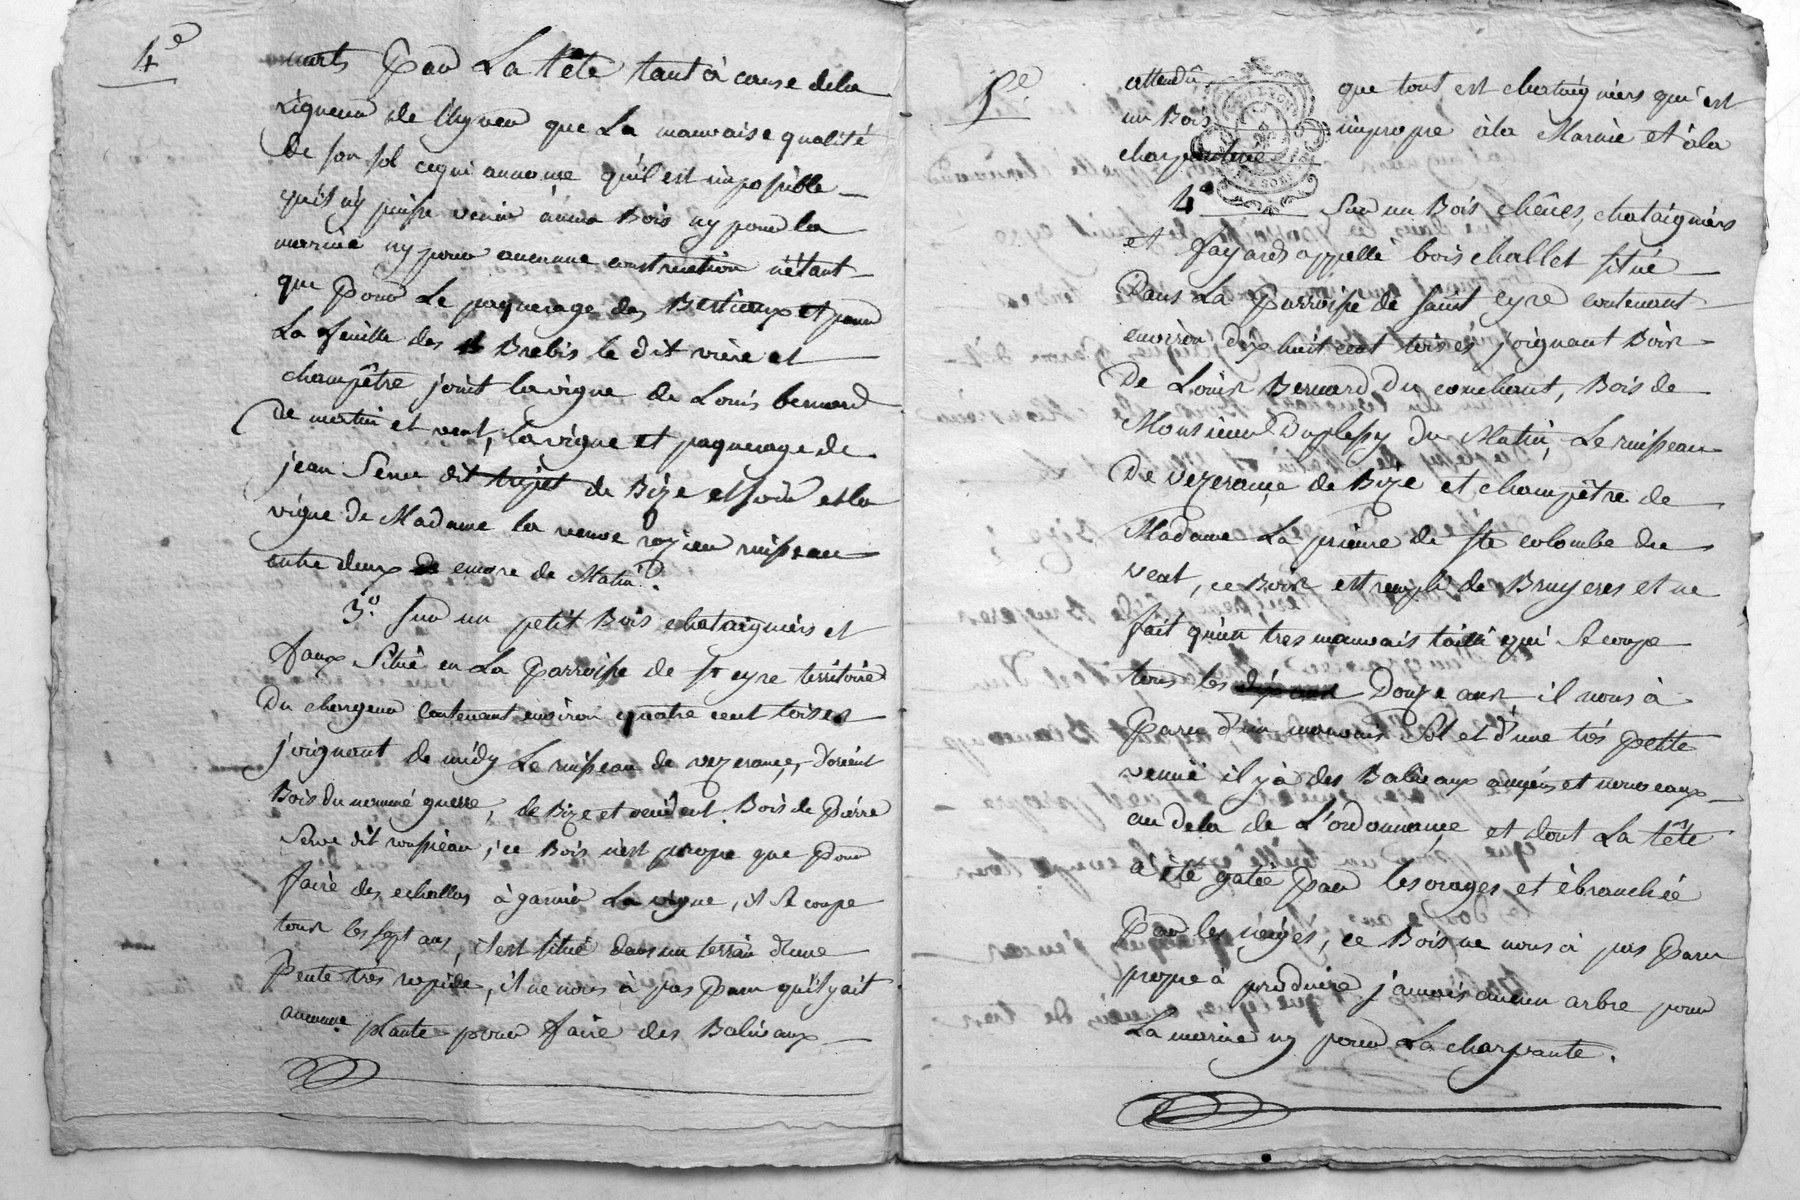 4e
morts par La tête tant à cause dela
rigueur de l'hyver que La mauvaise qualité
de son sol cequi annonce quil est impossible
quil n'y puisse venir aucun Bois ny pour la
marine ny pour aucunne construction n'étant
que pour Le paquerage des Bestiaux et pour
La feuille des Brebis le dit et
champêtre joint la vigne de Louis bernard
de matin et vent, la vigne et paquerage de
jean Serve dit de Bize et soir et la
vigne de Madame la veuve ruisseau
entre deux encore de Matin.
3.° Sur un petit Bois chataigniers et
faux Situé en La Parroisse de st eyre territoire
Du contenant environ quatre cent toises
joignant de midy Le ruisseau de vezerance, d'orient
Bois du nommé guerre, de Bize et occident Bois de Pierre
Serve dit rousseau, ce Bois n'est propre que pour
faire des echallas à garnir La vigne, il Se coupe
tous les sept ans, il est situé dans un terrain d'une
pente très rapide, il ne nous à pas paru qu'il y ait
aucunne plante pour faire des Baliveaux
5e.
attendû que tout est chataigniers qui est
un Bois impropre àla Marine et àla
charpentene
4° Sur un Bois chênes, chataigniers
et fayards appellé bois chollet situé
Dans La Parroisse de saint eyre contenant
environ dix huit cent toises joignant Bois
de Louis Bernard du couchant, Bois de
Monsieur Duplessy du Matin, Le ruisseau
De vezerance de Bize et champêtre de
Madame La prieure de ste colombe du
vent, ce Bois est rempli de Bruyeres et ne
fait qu'un tres mauvais tailli qui Se coupe
tous les Douze ans il nous à
paru d'un mauvais Sol et d'une très petite
venuë il y à des Baliveaux anciens et nouveaux
au dela de L'ordonnance et dont La tête
à été gatée par les orages et ébranchée
par les neiges, ce Bois ne nous à pas paru
propre à produire jamais aucun arbre pour
La marine ny pour La charpante.